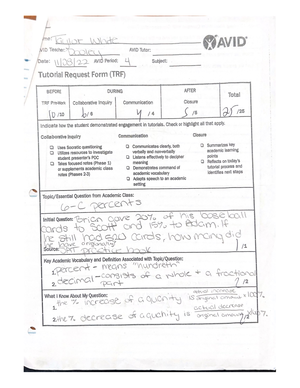 Name: Taylor White
AVID
AVID Teacher: Dooley AVID Tutor:
Date: 11/08/22 AVID Period: 4 Subject:
Tutorial Request Form (TRF)
BEFORE DURING AFTER Total
TRF Prework Collaborative Inquiry Communication Closure
10/10 6/6 4/4 5/5 25/25
Indicate how the student demonstrated engagement in tutorials. Check or highlight all that apply.
Collaborative Inquiry Communication Closure
Uses Socratic questioning
Utilizes resources to investigate student presenter's POC
Take focused notes (Phase 1) or supplements academic class notes (Phases 2-3)
Communicates clearly, both verbally and nonverbally
Listens effectively to decipher meaning
Demonstrates command of academic vocabulary
Adapts speech to an academic setting
Summarizes key academic learning points
Reflects on today's tutorial process and identifies next steps
Topic/Essential Question from Academic Class:
6-C percents
Initial Question: Brian gave 20% of his baseball
cards to Scott and 15% to Adam. If
he still had 520 cards, how many did
he have originally
Source: practice book /2
Key Academic Vocabulary and Definition Associated with Topic/Question:
1. percent - means "hundreth"
2. decimal - consists of a whole + a fractional
part /2
What I Know About My Question:
1. the % increase of a quantity is actual increase original amount x100%
2. the % decrease of a quantity is original amount x100%
/2